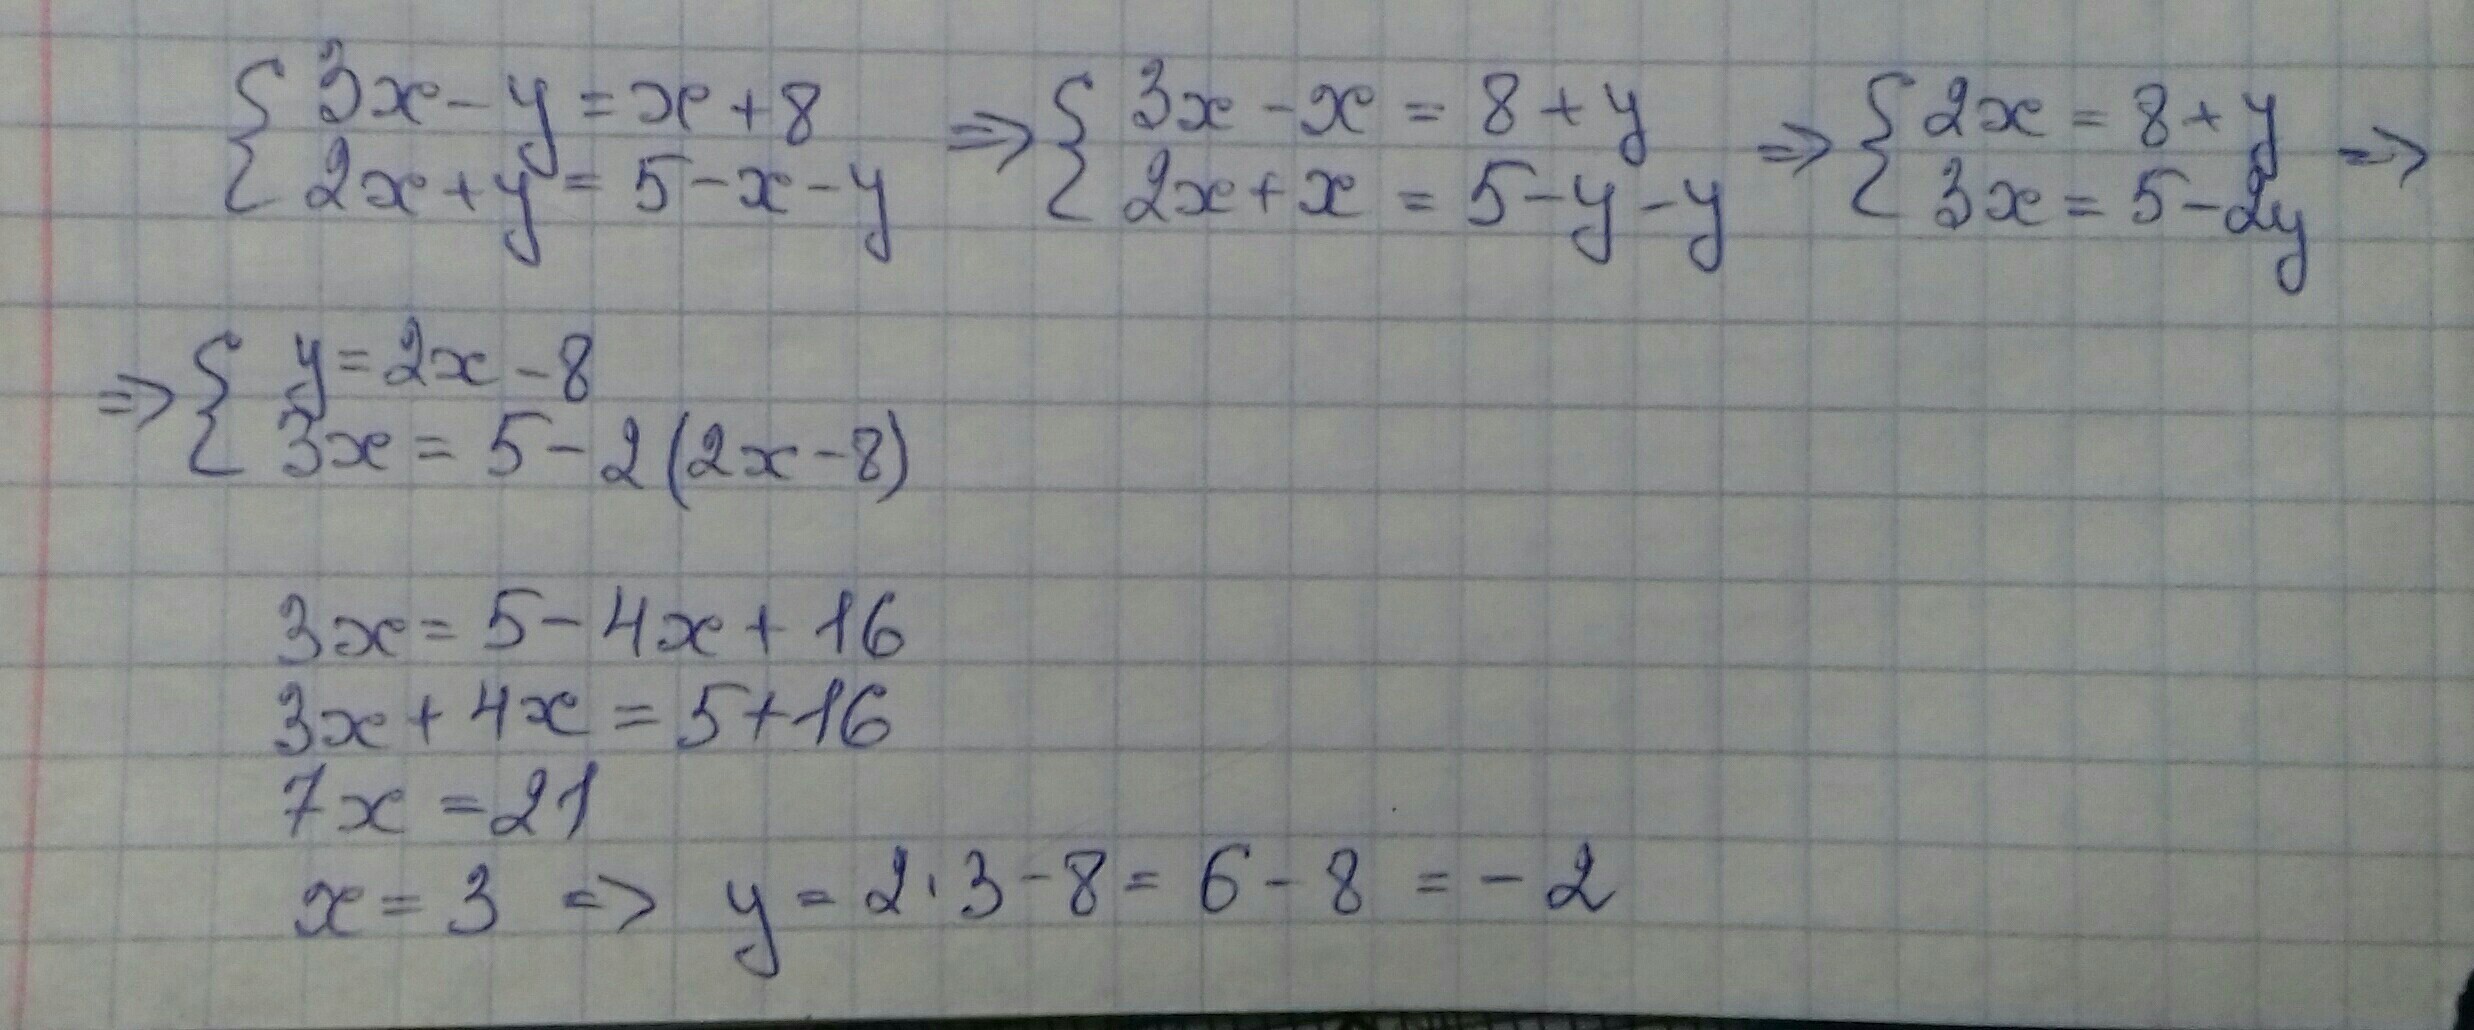 { 3x - y = x + 8 => { 3x - x = 8 + y => { 2x = 8 + y =>
{ 2x + y = 5 - x - y { 2x + x = 5 - y - y { 3x = 5 - 2y
=> { y = 2x - 8
{ 3x = 5 - 2(2x - 8)
3x = 5 - 4x + 16
3x + 4x = 5 + 16
7x = 21
x = 3 => y = 2 · 3 - 8 = 6 - 8 = - 2